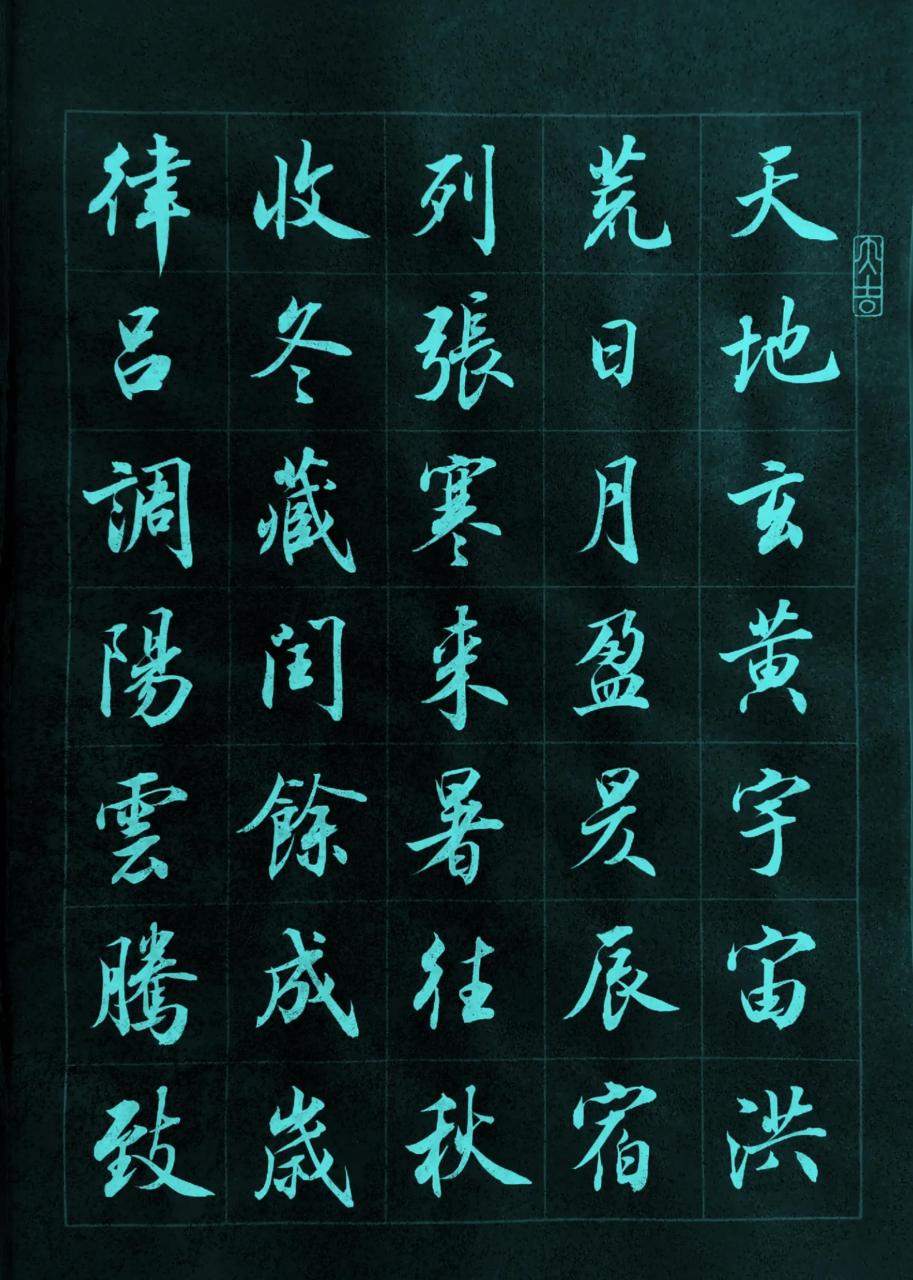 天地玄黄宇宙洪
荒日月盈昃辰宿
列張寒来暑往秋
收冬藏闰餘成歲
律吕調陽雲騰致
大吉